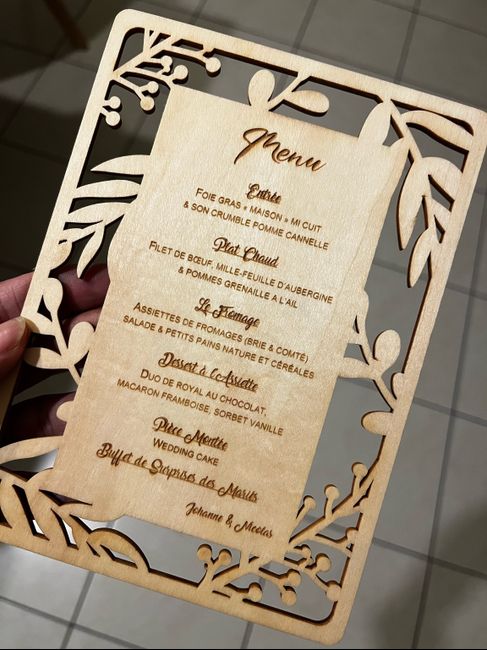 Menu
Entrée
FOIE GRAS « MAISON » MI CUIT
& SON CRUMBLE POMME CANNELLE
Plat Chaud
FILET DE BŒUF, MILLE-FEUILLE D'AUBERGINE
& POMMES GRENAILLE A L'AIL
Le Fromage
ASSIETTES DE FROMAGES (BRIE & COMTÉ)
SALADE & PETITS PAINS NATURE ET CÉRÉALES
Dessert à l'Assiette
DUO DE ROYAL AU CHOCOLAT,
MACARON FRAMBOISE, SORBET VANILLE
Pièce Montée
WEDDING CAKE
Buffet de Surprises des Mariés
Johanne & Nicolas